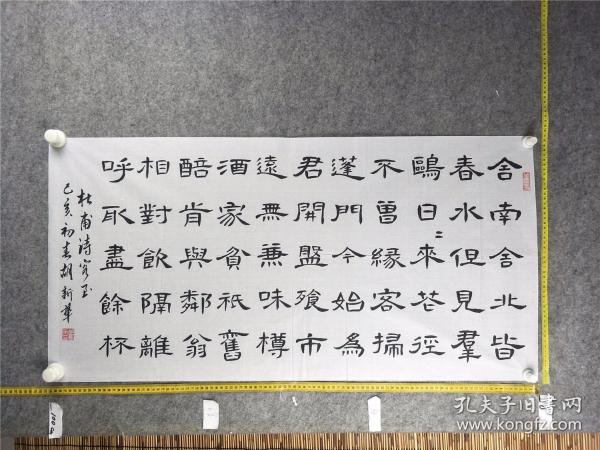 舍南舍北皆
春水但見羣
鷗日〻來花徑
不曾緣客掃
蓬門今始為
君開盤飧市
遠無兼味樽
酒家貧衹舊
醅肯與鄰翁
相對飲隔離
呼取盡餘杯
杜甫詩客至
己亥初春胡新華
孔夫子旧書网
www.kongfz.com